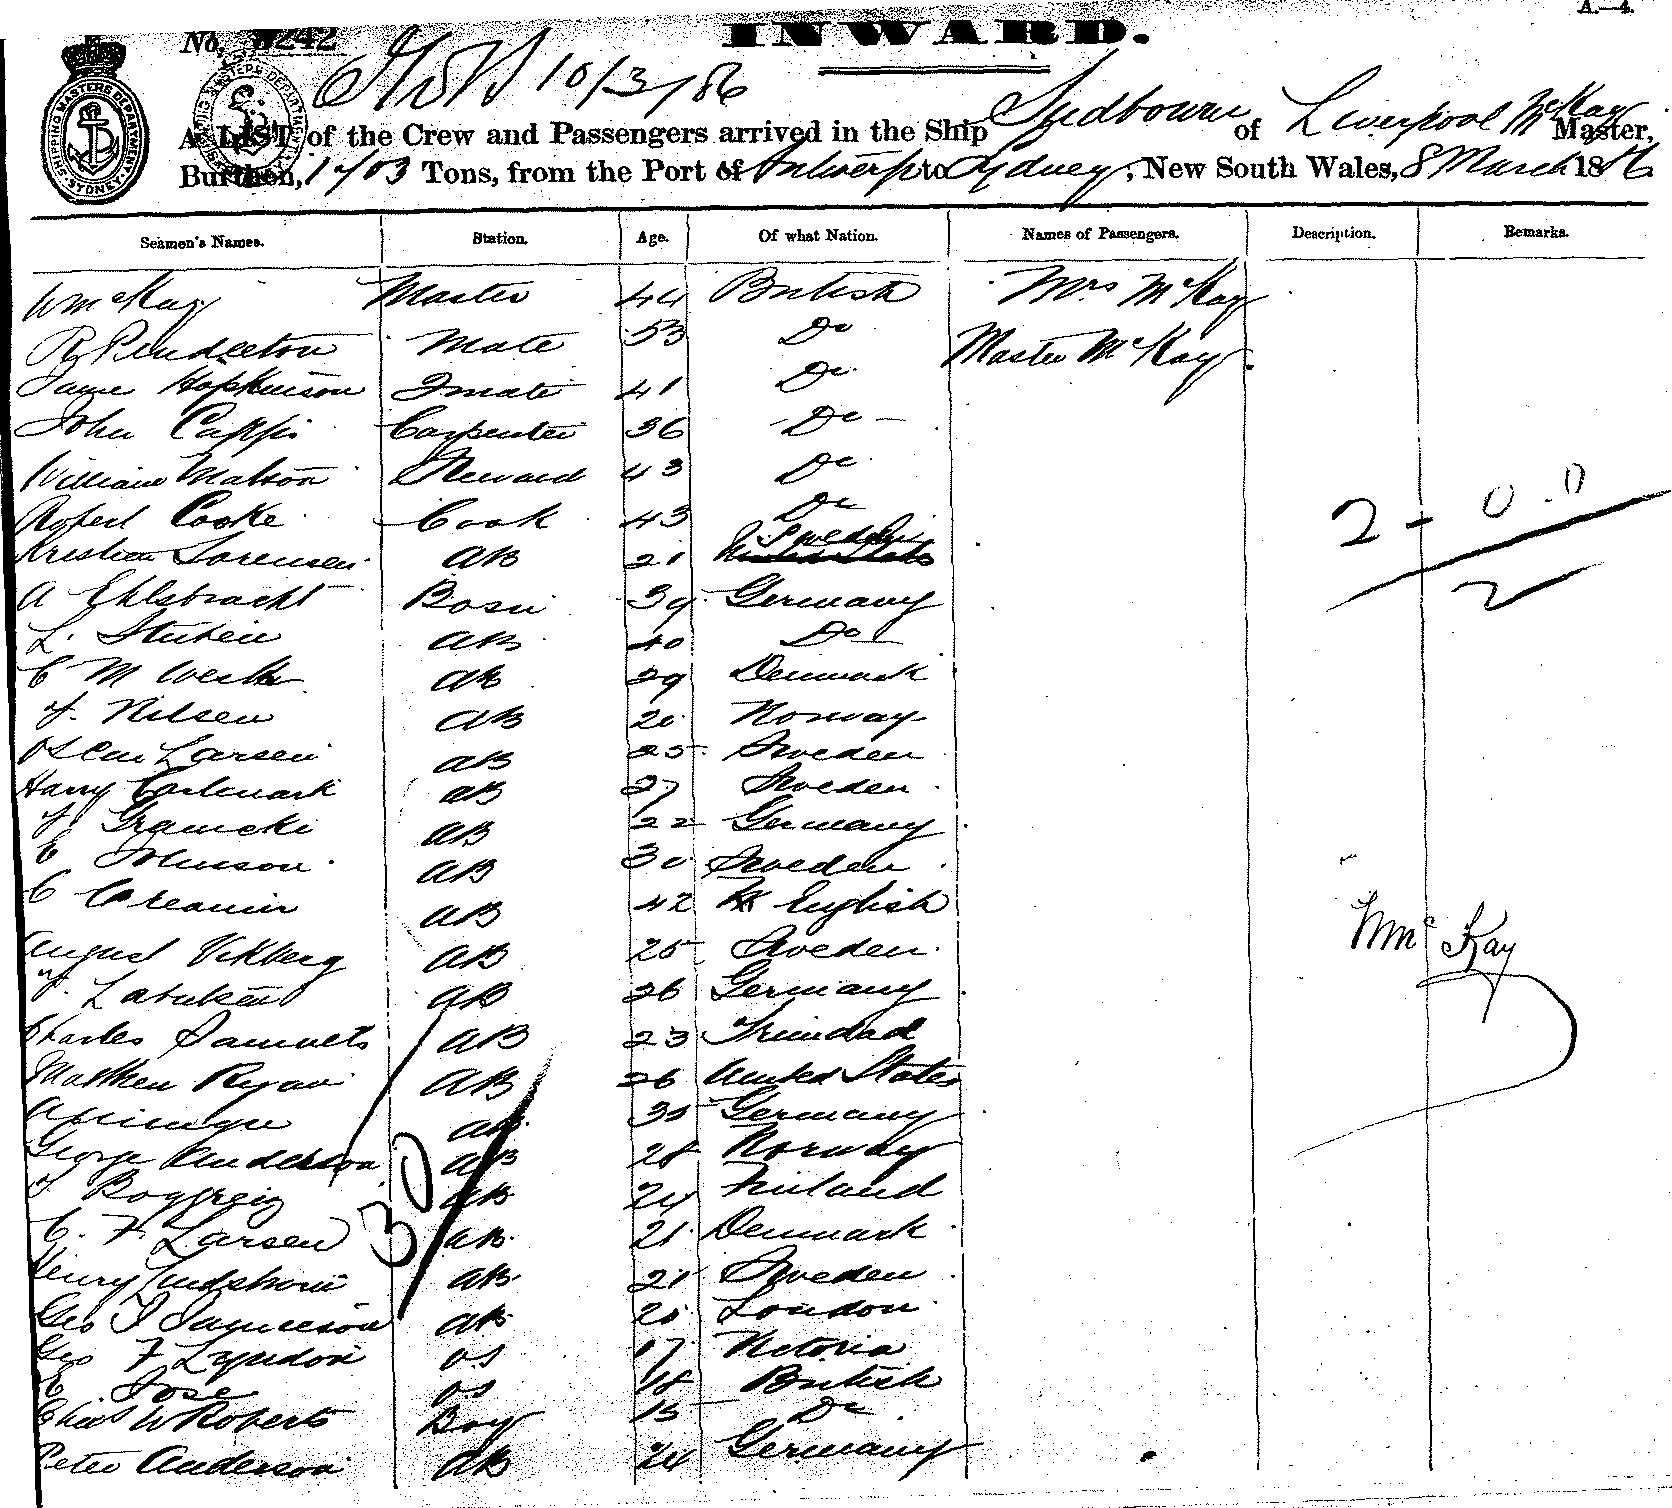 A.—4.
No. 242
INWARD.
10/3/86
SHIPPING MASTERS DEPARTMENT SYDNEY
A LIST of the Crew and Passengers arrived in the Ship Sudbourn of Liverpool McKay Master,
Burthen, 1703 Tons, from the Port of Antwerp to Sydney, New South Wales, 8 March 1886
Seamen's Names. Station. Age. Of what Nation. Names of Passengers. Description. Remarks.
W McKay Master 44 British Mrs McKay
R Pendleton Mate 53 Do Master McKay
James Hopkinson 2 mate 41 Do
John Cappi Carpenter 36 Do
William Matson Steward 43 Do
Robert Cooke Cook 43 Do
2 - 0.0
Kristian Sorensen AB 21 Sweden
A Ehlsbracht Bosn 39 Germany
2
L. Stuben AB 40 Do
C M Werth AB 29 Denmark
J. Nilsen AB 20 Norway
Oscar Larsen AB 25 Sweden
Harry Carlmark AB 27 Sweden
J Gramcki AB 22 Germany
C Johnson AB 30 Sweden
C AB 42 English
W McKay
August Vikberg AB 25 Sweden
J. AB 26 Germany
Charles Samuels AB 23 Trinidad
Mathew Ryan AB 26 United States
AB 35 Germany
George Anderson AB 28 Norway
30
J AB 24 Finland
C. F. Larsen AB 21 Denmark
Henry AB 21 Sweden
Geo AB 20 London
Geo F Lyndon OS 17 Victoria
E. Jose OS 18 British
Chas W Roberts Boy 15 Do
Peter Anderson AB 24 Germany